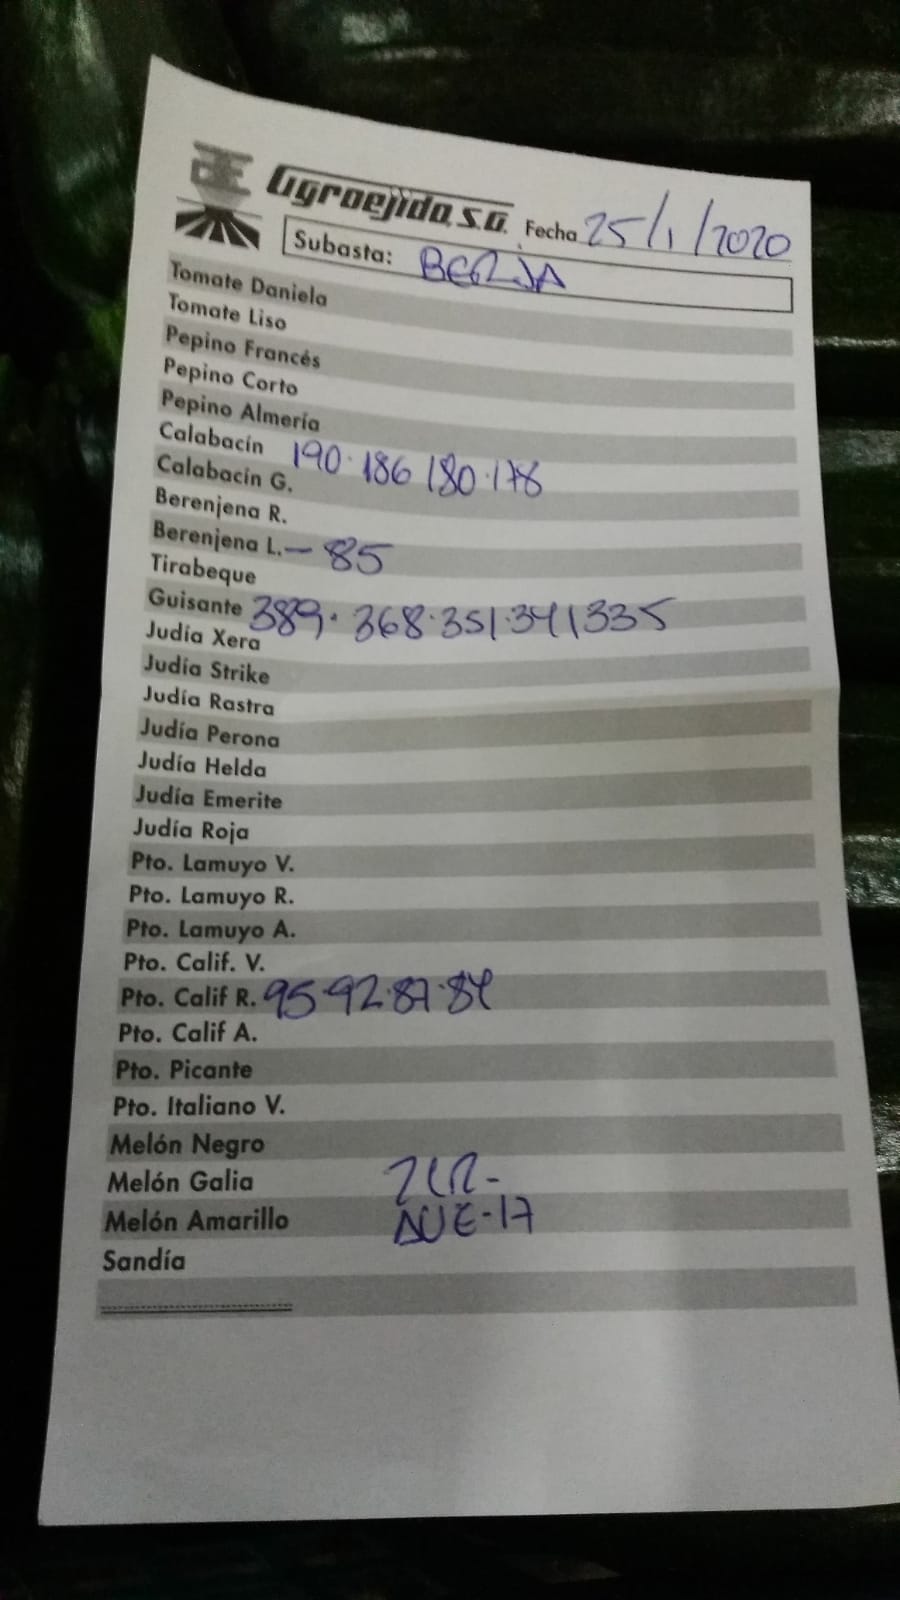 Agroejido, S.A. Fecha 25/1/2020
Subasta: BERJA
Tomate Daniela
Tomate Liso
Pepino Francés
Pepino Corto
Pepino Almería
Calabacín 190·186 180·178
Calabacín G.
Berenjena R.
Berenjena L.- 85
Tirabeque
Guisante 389·368·351·341335
Judía Xera
Judía Strike
Judía Rastra
Judía Perona
Judía Helda
Judía Emerite
Judía Roja
Pto. Lamuyo V.
Pto. Lamuyo R.
Pto. Lamuyo A.
Pto. Calif. V.
Pto. Calif R. 95·92·87·84
Pto. Calif A.
Pto. Picante
Pto. Italiano V.
Melón Negro
Melón Galia
Melón Amarillo -17
Sandía